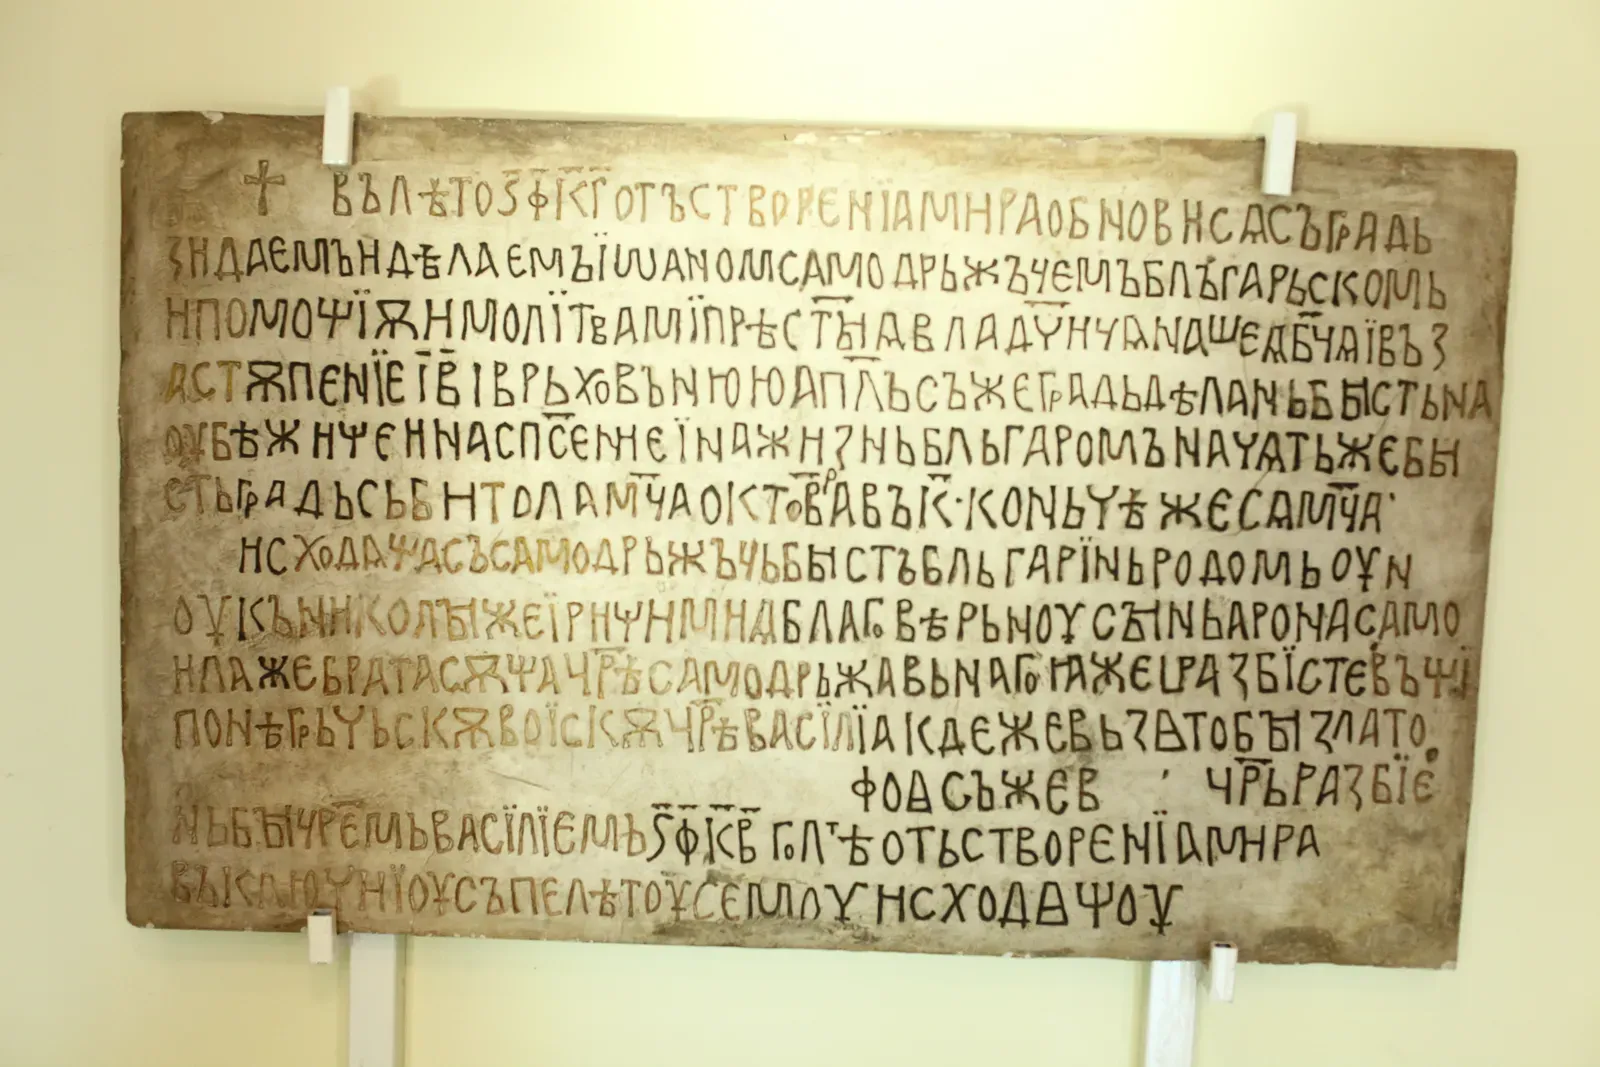 † ВЪЛѢТОЅ҃Ф҃К҃Г҃ОТЪСТВОРЕНЇАМИРАОБНОВИСАСЪГРАДЬ
ЗИДАЕМЪИДѢЛАЕМЪЇѠАНОМСАМОДРЬЖЪЧЕМЪБЛЪГАРЬСКОМЬ
ИПОМОЩЇѪИМОЛЇТВАМЇПРѢСТ҃ЫѦВЛАД҃ЧИЧѦНАШЕѦБ҃ЧѦЇВЪЗ
АСТѪПЕНЇЕІ҃В҃ІВРЬХОВЪНЮЮАП҃ЛЪСЪЖЕГРАДЬДѢЛАНЬБЫСТЬНА
ОУБѢЖИЩЕИНАСП҃СЕНЇЕЇНАЖИЗНЬБЛЬГАРОМЪНАЧѦТЬЖЕБЫ
СТЬГРАДЬСЬБИТОЛАМ҃ЦАОКТОВ҃РАВЪК҃·КОНЬЧѢЖЕСАМ҃ЦА·
ИСХОДАЩАСЪСАМОДРЬЖЪЧЬБЫСТЪБЛЬГАРЇНЬРОДОМЬОУН
ОУКЪНИКОЛЫЖЕЇРИѰИМИѦБЛАГОВѢРЬНОУСЫНЬАРОНАСАМО
ИЛАЖЕБРАТАСѪЩАЦР҃ѢСАМОДРЬЖАВЬНАГОꙖЖЕІРАЗБЇСТЕВЪЩІ
ПОНѢГРЬЧЬСКѪВОЇСКѪЦР҃ѢВАСЇЛЇАКДЕЖЕВЬЗАТОБЫЗЛАТО
ФОАСЪЖЕВ · ЦР҃ЬРАЗБЇЕ
НЬБЫЦР҃ЕМЬВАСЇЛЇЕМЬЅ҃Ф҃К҃В҃ГОЛТѢОТЬСТВОРЕНЇАМИРА
ВЪКЛЮЧИЇОУСЪПЕЛѢТОУСЕМОУИСХОДАЩОУ